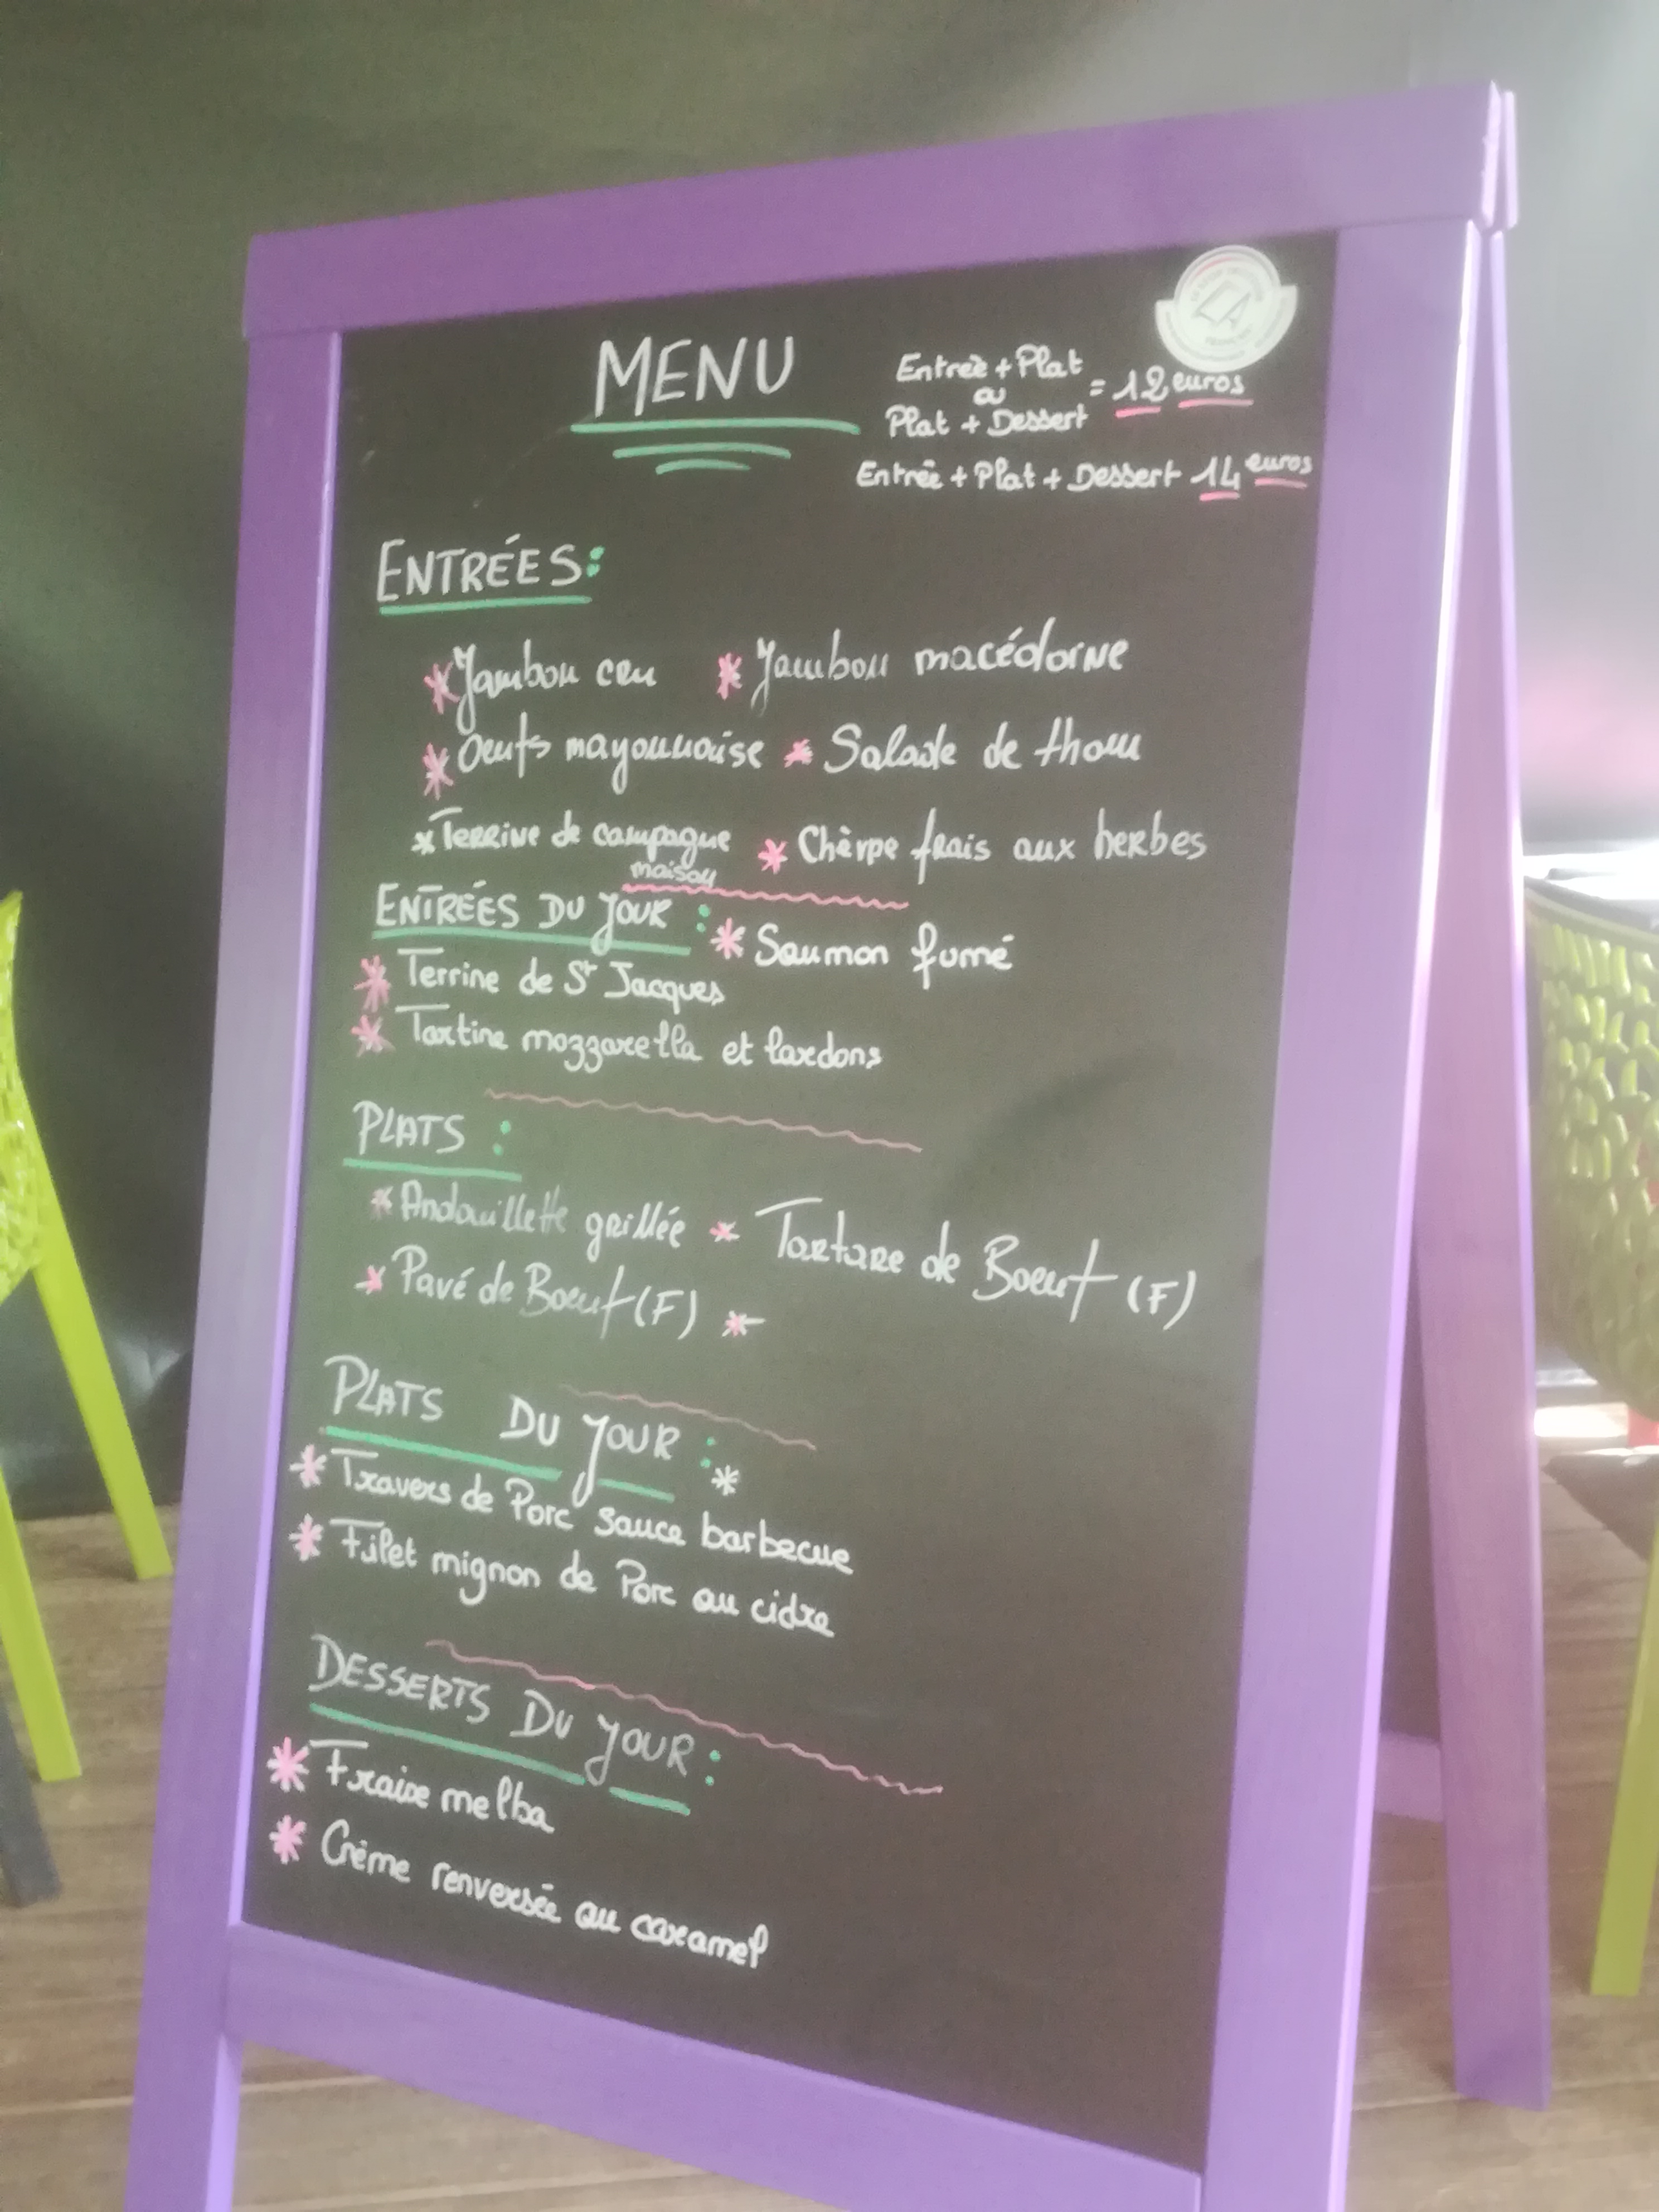 MENU
Entreè + Plat
ou
Plat + Dessert
= 12 euros
Entrée + Plat + Dessert 14 euros
ENTRÉES:
* Jambon cru * Jambon macédoine
* Oeufs mayonnaise * Salade de thon
* Terrine de campagne * Chèvre frais aux herbes
maison
ENTRÉES DU JOUR : * Saumon fumé
* Terrine de St Jacques
* Tartine mozzarella et lardons
PLATS :
* Andouillette grillée * Tartare de Boeuf (F)
* Pavé de Boeuf (F) *
PLATS DU JOUR : *
* Travers de Porc sauce barbecue
* Filet mignon de Porc au cidre
DESSERTS DU JOUR :
* Fraise melba
* Crème renversée au caramel